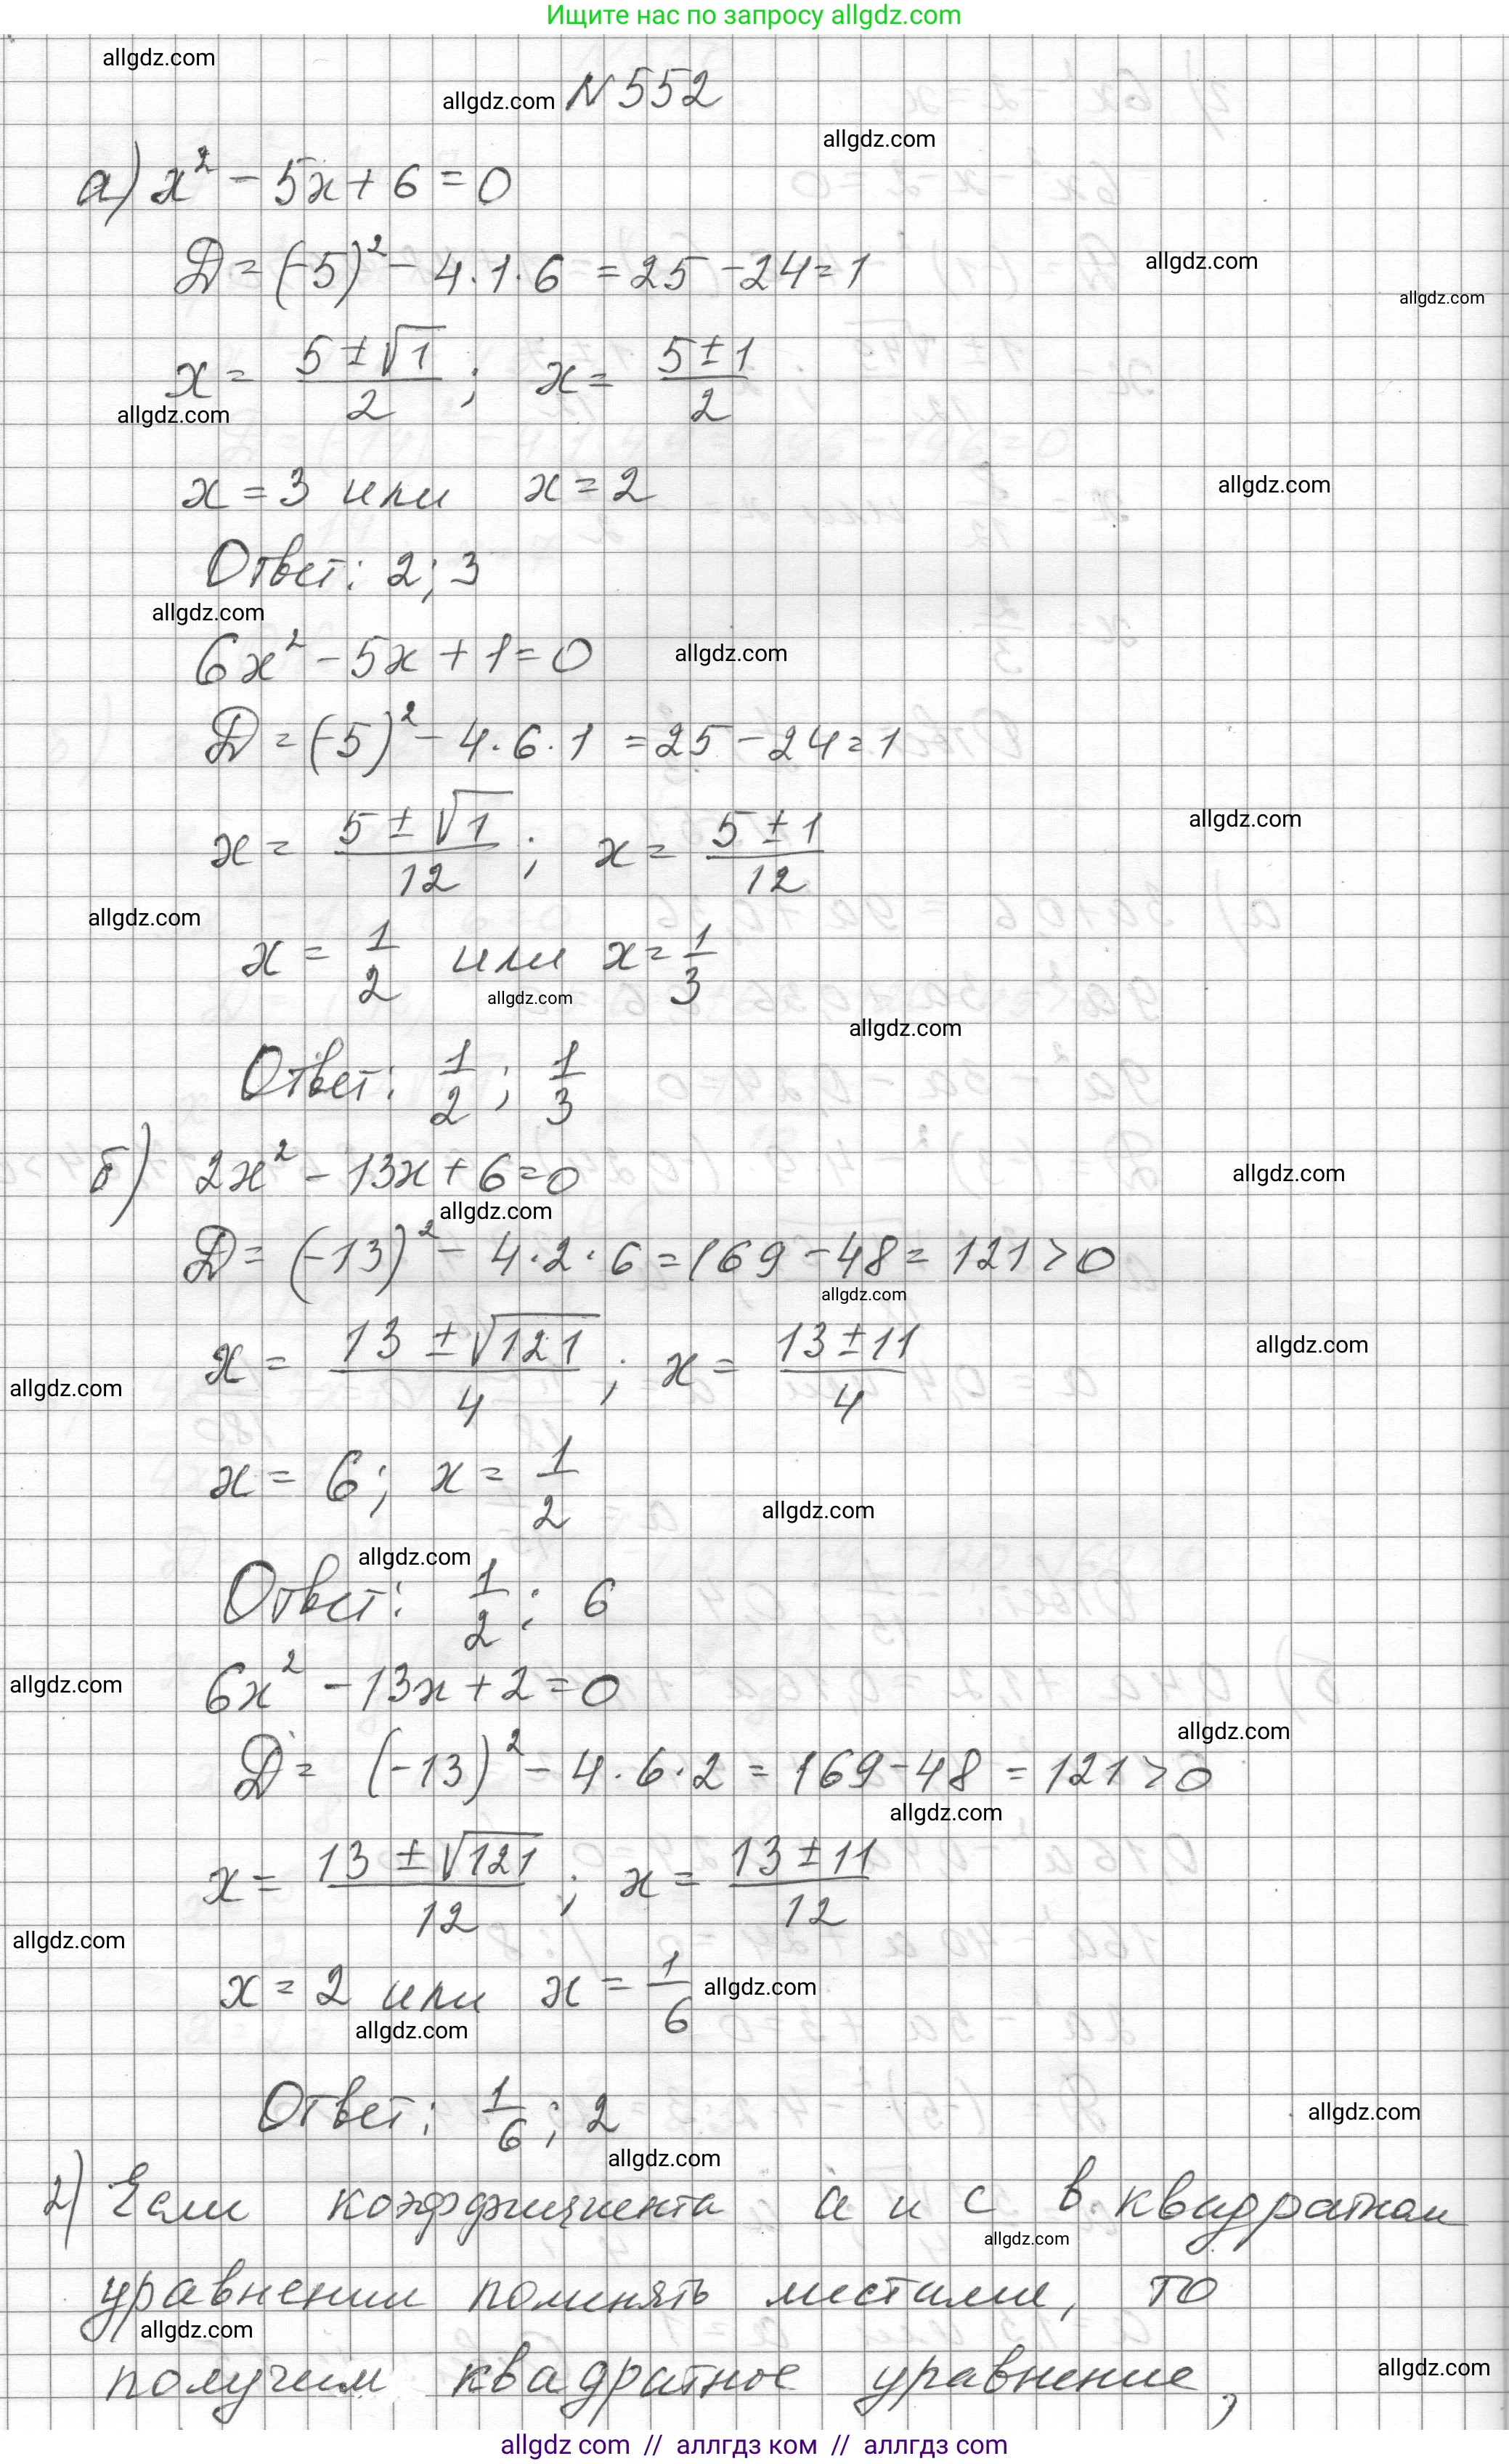 Ищите нас по запросу allgdz.com
allgdz.com
allgdz.com N 552
allgdz.com
а) x² - 5x + 6 = 0
D = (-5)² - 4·1·6 = 25 - 24 = 1
allgdz.com
allgdz.com
x = (5 ± √1)/2 ; x = (5 ± 1)/2
allgdz.com
x = 3 или x = 2
allgdz.com
Ответ: 2; 3
allgdz.com
6x² - 5x + 1 = 0
allgdz.com
D = (-5)² - 4·6·1 = 25 - 24 = 1
x = (5 ± √1)/12 ; x = (5 ± 1)/12
allgdz.com
allgdz.com
x = 1/2 или x = 1/3
allgdz.com
allgdz.com
Ответ: 1/2 ; 1/3
б) 2x² - 13x + 6 = 0
allgdz.com
allgdz.com
D = (-13)² - 4·2·6 = 169 - 48 = 121 > 0
allgdz.com
x = (13 ± √121)/4 ; x = (13 ± 11)/4
allgdz.com
allgdz.com
x = 6; x = 1/2
allgdz.com
allgdz.com
Ответ: 1/2 ; 6
6x² - 13x + 2 = 0
allgdz.com
allgdz.com
D = (-13)² - 4·6·2 = 169 - 48 = 121 > 0
allgdz.com
x = (13 ± √121)/12 ; x = (13 ± 11)/12
allgdz.com
x = 2 или x = 1/6
allgdz.com
allgdz.com
Ответ: 1/6 ; 2
allgdz.com
allgdz.com
2) Если коэффициента а и с в квадратном
allgdz.com
уравнении поменять местами, то
allgdz.com
получим квадратное уравнение,
allgdz.com
allgdz com // аллгдз ком // аллгдз com